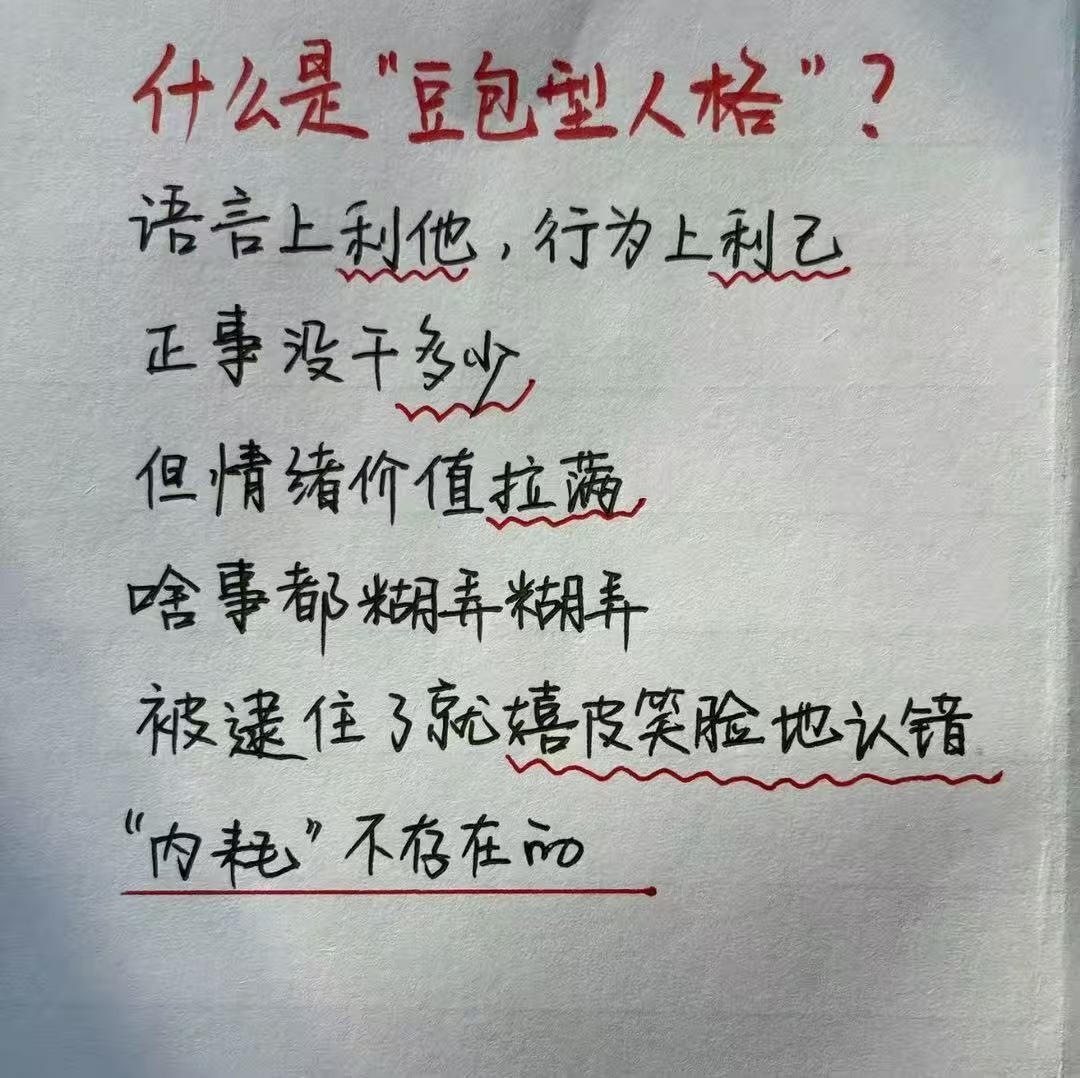 什么是“豆包型人格”？
语言上利他，行为上利己
正事没干多少
但情绪价值拉满
啥事都糊弄糊弄
被逮住了就嬉皮笑脸地认错
“内耗”不存在的